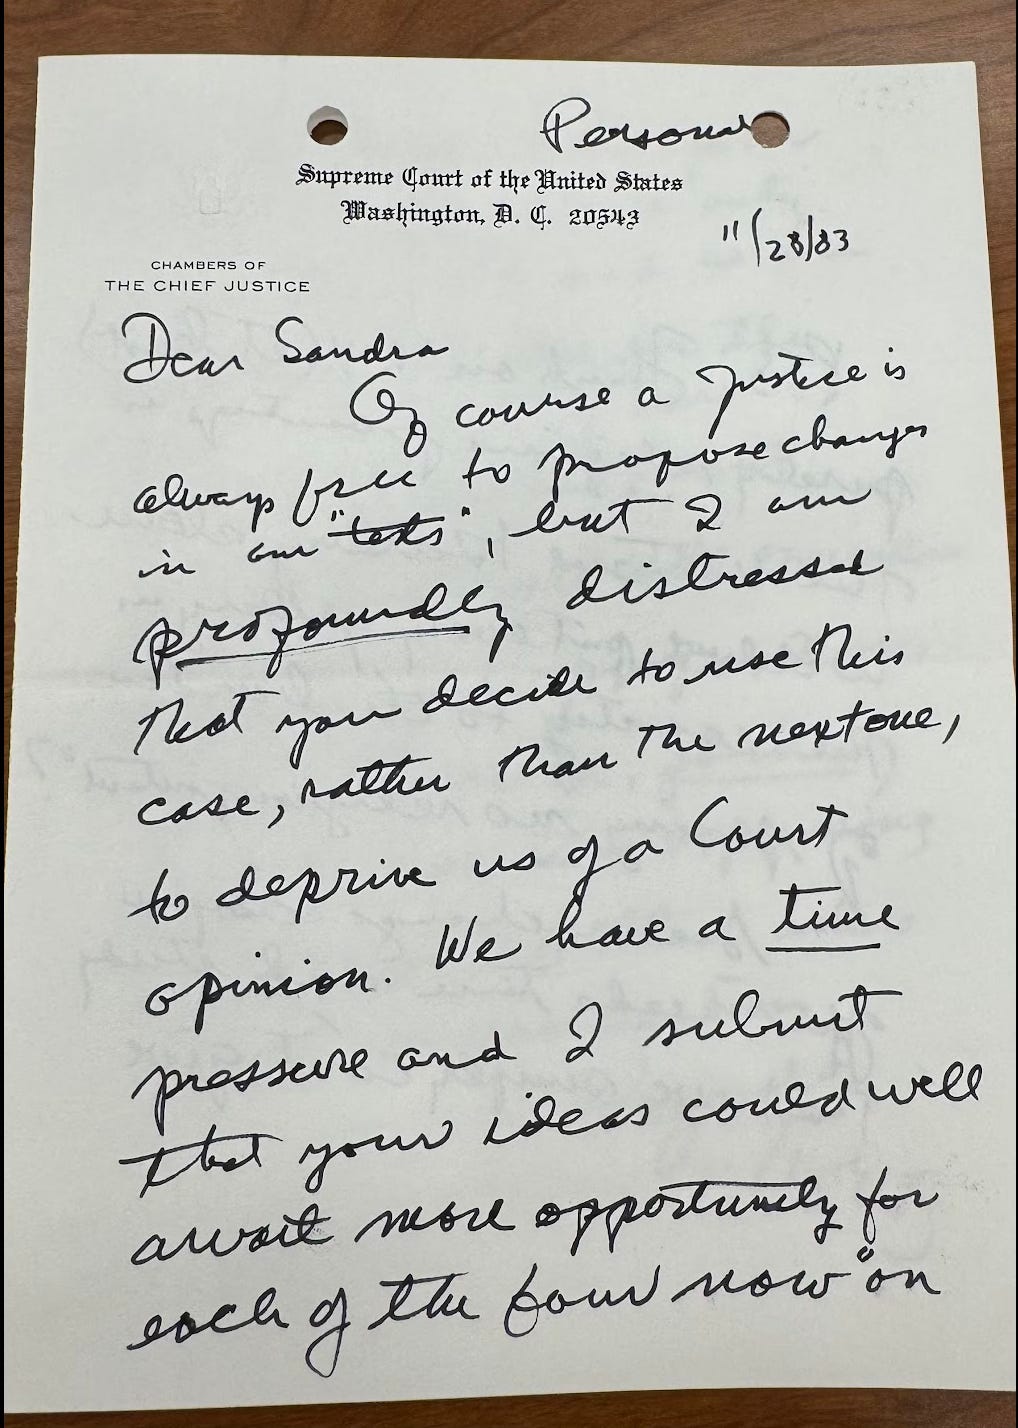 Personal
Supreme Court of the United States
Washington, D. C. 20543
11/28/83
CHAMBERS OF
THE CHIEF JUSTICE
Dear Sandra
Of course a Justice is
always free to propose changes
in our "tests", but I am
profoundly distressed
that you decide to use this
case, rather than the next one,
to deprive us of a Court
opinion. We have a time
pressure and I submit
that your ideas could well
await more opportunity for
each of the four now "on